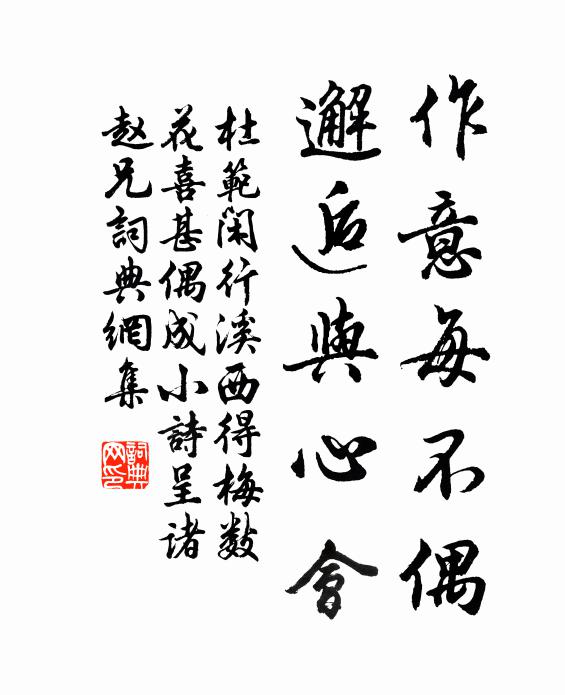 作意每不偶
邂逅與心會
杜範閑行溪西得梅數
花喜甚偶成小詩呈诸
赵兄詞典網集
詞典網印